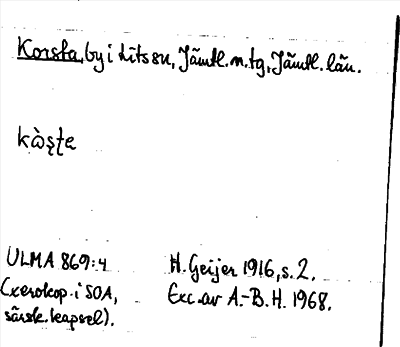 Korsta, by i Lits sn, Jämtl. n. tg, Jämtl. län.
kὼșț̣e
ULMA 869:4
(xerokop. i SOA,
särsk. kapsel).
H. Geijer 1916, s. 2.
Exc. av A.-B. H. 1968.